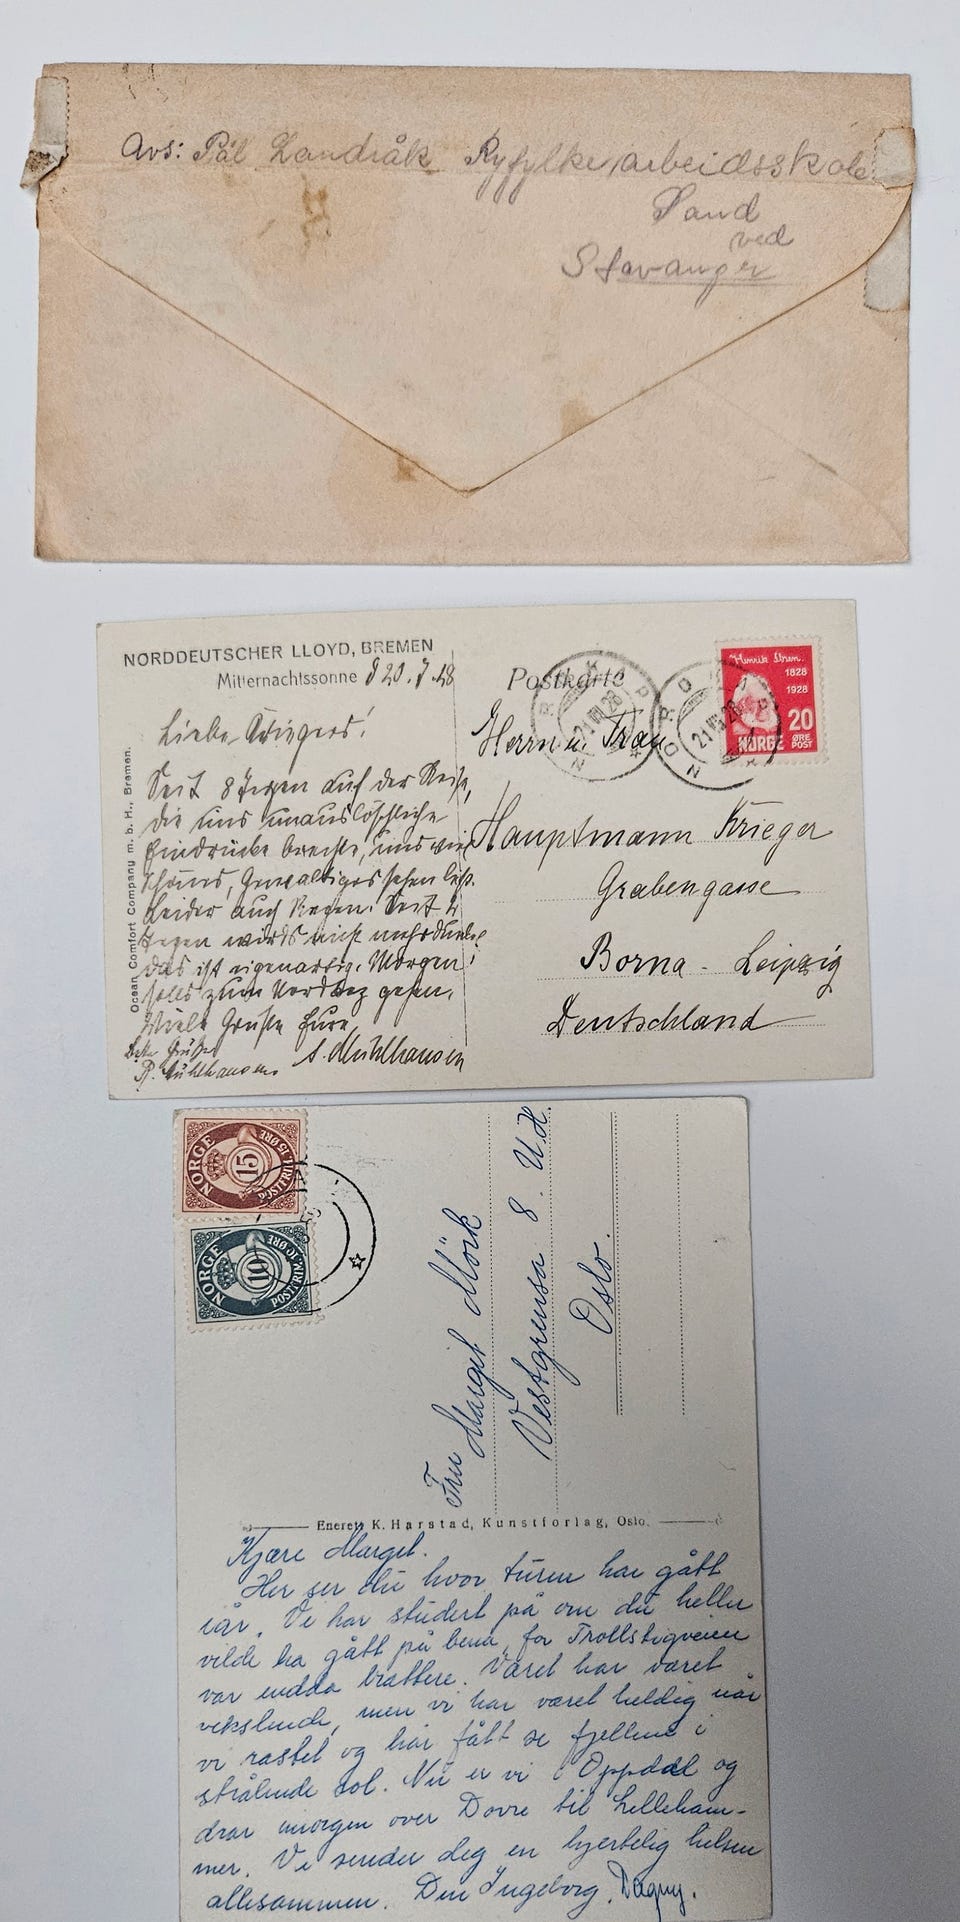 Avs: Pål Landråk Ryfylke, arbeidsskole
Sand
ved
Stavanger
NORDDEUTSCHER LLOYD, BREMEN
Mitternachtssonne 20.7.28
Postkarte
Henrik Ibsen.
1828
1928
20
NORGE ØRE POST
21 VII 28
21 VII 28
Liebe Kriegers!
Seit 8 Tagen auf der Reise,
die uns unauslöschliche
Eindrücke brachte, uns viel
Schönes, Gewaltiges sehen ließ.
Leider auch Regen. Seit 4
Tagen wirds nicht mehr dunkel
das ist eigenartig. Morgen
solls zum Nordkap gehen.
Viele Grüße Eure
A. Mühlhausen
Grüße
R. Mühlhausen
Ocean Comfort Company m. b. H., Bremen.
Herrn u. Frau
Hauptmann Krieger
Grabengasse
Borna - Leipzig
Deutschland
NORGE
15
POSTFRIM. 15 ØRE
NORGE
10
POSTFRIM. 10 ØRE
Fru Marget Mörk
Vestgrensa 8. U.H.
Oslo.
Enerett K. Harstad, Kunstforlag, Oslo.
Kjære Marget.
Her ser du hvor turen har gått
iår. Vi har studert på om du heller
vilde ha gått på bena, for Trollstigveien
var endda brattere. Været har været
vekslende, men vi har været heldig når
vi rastet og har fått se fjellene i
strålende sol. Nu er vi i Oppdal og
drar imorgen over Dovre til Lilleham-
mer. Vi sender deg en hjertelig hilsen
allesammen. Din Ingeborg. Dagny.